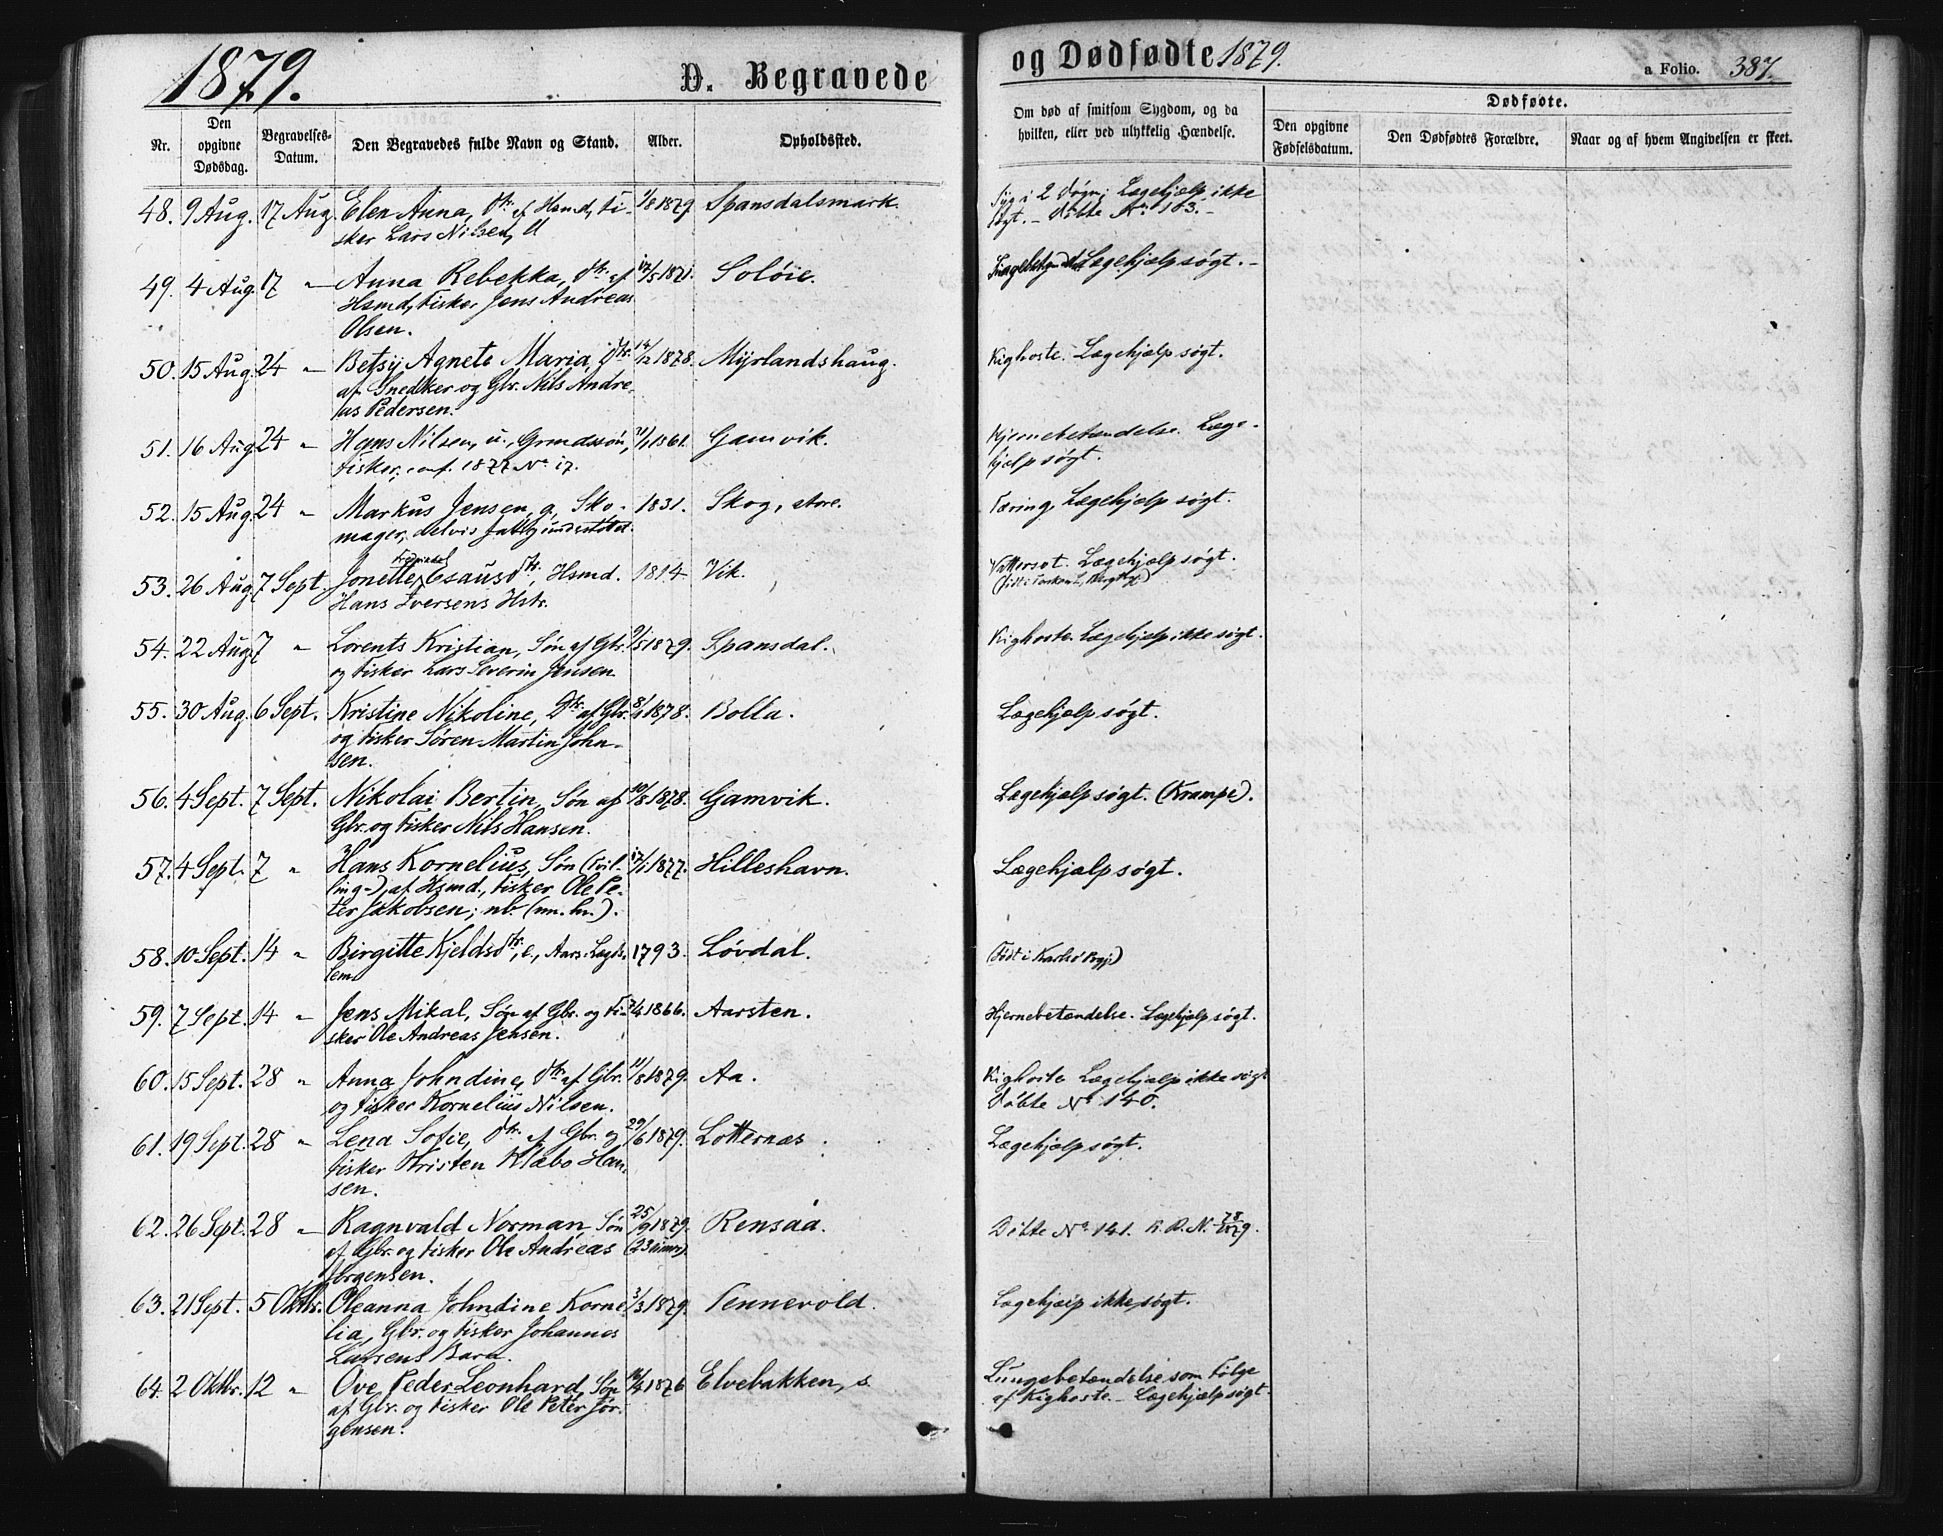 1879.
D. Begravede
Nr.
Den opgivne Dødsdag.
Begravelses-Datum.
Den Begravedes fulde Navn og Stand.
Alder.
Opholdssted.
48. 9 Aug. 17 Aug. Elen Anna, Dtr. af Hsmd, Fi- 1/8 1879 Spansdalsmark.
sker Lars Nilsen,
49. 4 Aug. 17 " Anna Rebekka, Dtr. af 17/5 1871. Soløie.
Hsmd, Fisker Jens Andreas
Olsen.
50. 15 Aug. 24 " Betsy Agnete Maria, Dtr. 14/12 1878. Myrlandshaug.
af Snedker og Gbr. Nils Andre-
as Pedersen.
51. 16 Aug. 24 " Hans Nilsen, u., Grmdssøn, 1861. Gamvik.
Fisker, conf. 1877 No 17.
52. 15 Aug. 24 " Markus Jensen, g, Sko- 1831. Skog, store.
mager, delvis fattigunderstøttet.
Fredrikke
53. 26 Aug. 7 Sept. Jonette Esausdtr., Hsmd. 1814 Vik.
Hans Iversens Hstr.
54. 22 Aug. 7 " Lorents Kristian, Søn af Gbr. 9/5 1879. Spansdal.
og Fisker Lars Severin Jensen.
55. 30 Aug. 6 Sept. Kristine Nikoline, Dtr. af Gbr. 1878. Bolla.
og Fisker Søren Martin John-
sen.
56. 4 Sept. 7 Sept. Nikolai Bertin, Søn af 10/8 1878. Gamvik.
Gbr. og Fisker Nils Hansen.
57. 4 Sept. 7 " Hans Kornelius, Søn (Tvil- 17/1 1877. Hilleshavn.
ling-), af Hsmd., Fisker Ole Pe-
ter Jakobsen; nb.
58. 10 Sept. 14 " Birgitte Kjeldsdtr., e., Aars. Lægds- 1793. Løvdal.
lem
59. 7 Sept. 14 " Jens Mikal, Søn af Gbr. og Fi- 1866. Aarsten.
sker Ole Andreas Jensen.
60. 15 Sept. 28 " Anna Johndine, Dtr. af Gbr. 11/8 1879. Aa.
og Fisker Kornelius Nilsen.
61. 19 Sept. 28 " Lena Sofie, Dtr. af Gbr. og 29/6 1879. Lotternæs.
Fisker Kristen Klæbo Han-
sen.
62. 26 Sept. 28 " Ragnvald Norman, Søn 25/9 1879. Rensaa.
af Gbr. og Fisker Ole Andreas (23 timer).
Jørgensen.
63. 21 Sept. 5 Oktbr. Oleanna Johndine Korne- 3/3 1879. Tennevold.
lia, Gbr. og Fisker Johannes
Larsens Barn.
64. 2 Oktbr. 12 " Ove Peder Leonhard, Søn 1876 Elvebakken, s.
af Gbr. og Fisker Ole Peter Jør-
gensen.
og Dødfødte 1879.
a Folio. 387.
Om død af smitsom Sygdom, og da hvilken, eller ved ulykkelig Hændelse.
Dødfødte.
Den opgivne Fødselsdatum.
Den Dødfødtes Forældre.
Naar og af hvem Angivelsen er skeet.
Syg i 2 Døgn; Lægehjælp ikke
søgt. - Døbte No 103. -
Lægehjælp søgt. -
Kighoste. Lægehjælp søgt.
Hjernebetændelse. Læge-
hjælp søgt.
Tæring, Lægehjælp søgt.
Vattersot. Lægehjælp søgt.
Kighoste. Lægehjælp ikke søgt.
Lægehjælp søgt.
Lægehjælp søgt. (Krampe).
Lægehjælp søgt.
(Født i Karlsø Prgj.)
Hjernebetændelse. Lægehjælp søgt.
Kighoste Lægehjælp ikke søgt
Døbte No 140.
Lægehjælp søgt.
Døbte No 141. K. D. N. 78/1879.
Lægehjælp ikke søgt.
Lungebetændelse som Følge
af Kighoste. - Lægehjælp søgt.